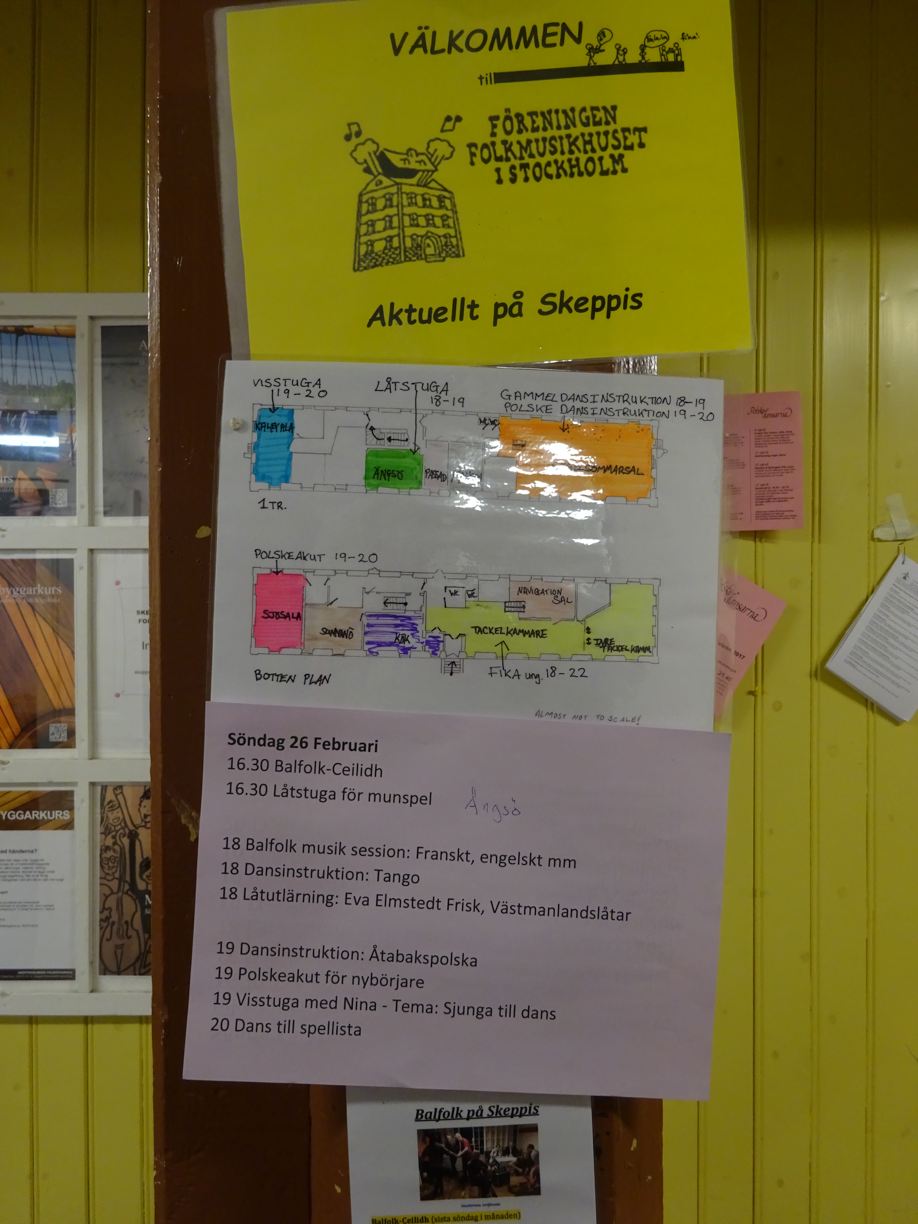 VÄLKOMMEN
fika!
till
FÖRENINGEN
FOLKMUSIKHUSET
I STOCKHOLM
Aktuellt på Skeppis
VISSTUGA
19-20
LÅTSTUGA
18-19
GAMMELDANSINSTRUKTION 18-19
POLSKE DANSINSTRUKTION 19-20
KALEVALA
ÄNGSÖ
1 TR.
POLSKEAKUT 19-20
SJÖSALA
NAVIGATION
SAL
KÖK
TACKELKAMMARE
BOTTEN PLAN
FIKA ung. 18-22
ALMOST NOT TO SCALE!
Söndag 26 Februari
16.30 Balfolk-Ceilidh
16.30 Låtstuga för munspel
Ängsö
18 Balfolk musik session: Franskt, engelskt mm
18 Dansinstruktion: Tango
18 Låtutlärning: Eva Elmstedt Frisk, Västmanlandslåtar
19 Dansinstruktion: Åtabakspolska
19 Polskeakut för nybörjare
19 Visstuga med Nina - Tema: Sjunga till dans
20 Dans till spellista
Balfolk på Skeppis
Balfolk-Ceilidh (sista söndag i månaden)
byggarkurs
YGGARKURS